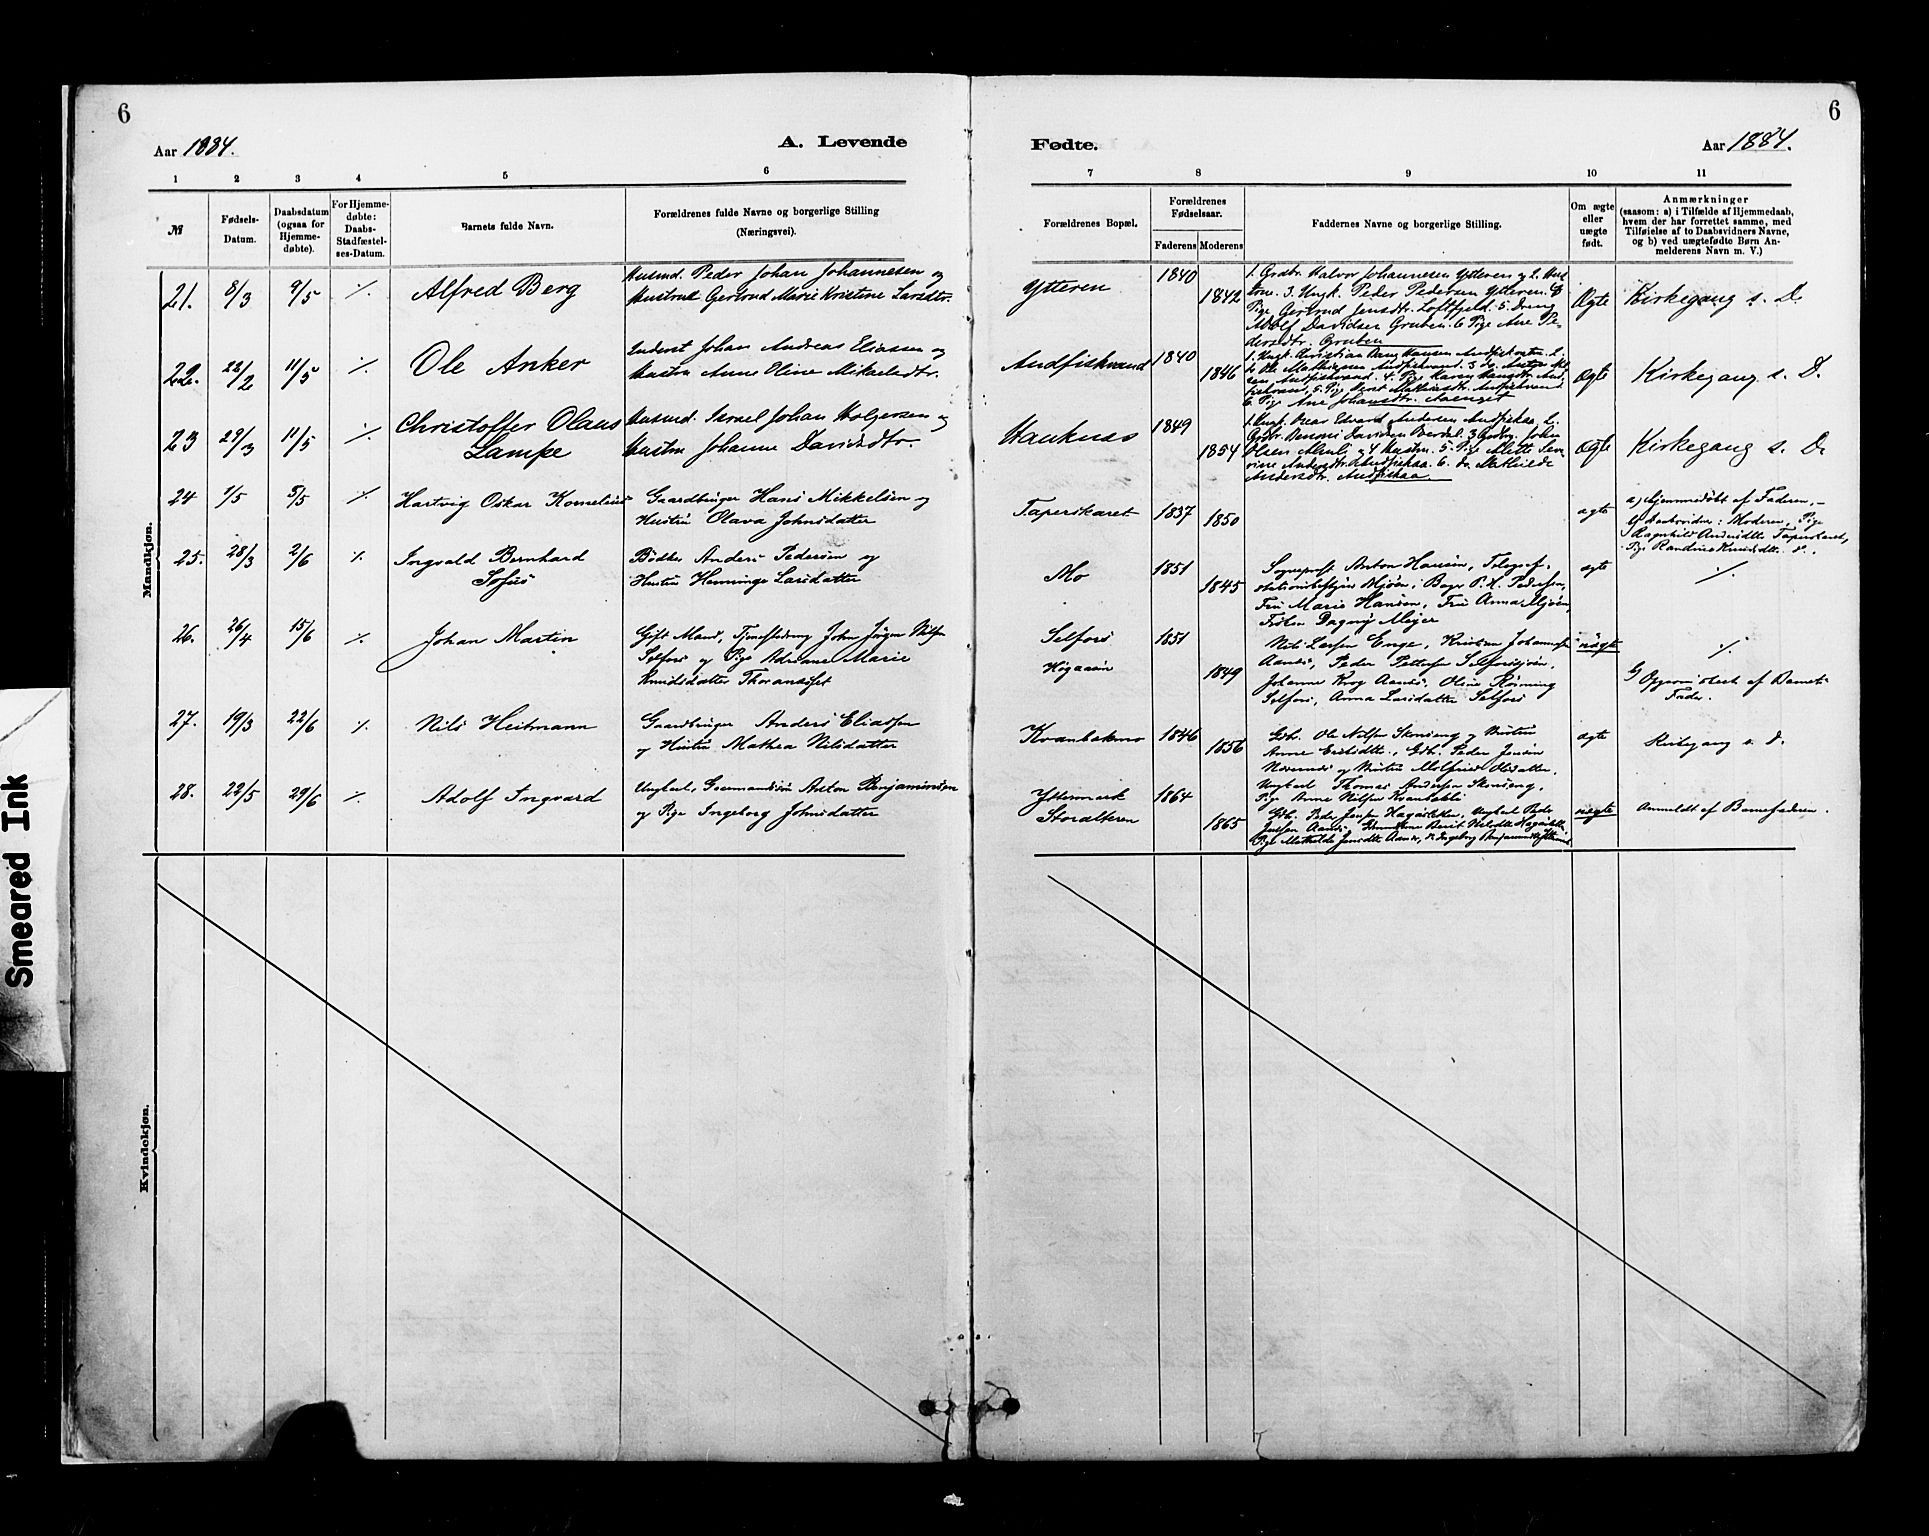 6
6
Aar 1884.
A. Levende
Fødte.
Aar 1884.
1 2 3 4 5 6 7 8 9 10 11
№
Fødsels-
Datum.
Daabsdatum
(ogsaa for
Hjemme-
døbte).
For Hjemme-
døbte:
Daabs-
Stadfæstel-
ses-Datum.
Barnets fulde Navn.
Forældrenes fulde Navne og borgerlige Stilling
(Næringsvei).
Forældrenes Bopæl.
Forældrenes
Fødselsaar.
Faderens Moderens
Faddernes Navne og borgerlige Stilling.
Om ægte
eller
uægte
født.
Anmærkninger
(saasom: a) i Tilfælde af Hjemmedaab,
hvem der har forrettet samme, med
Tilføielse af to Daabsvidners Navne,
og b) ved uægtefødte Børn An-
melderens Navn m. V.)
Mandkjøn.
21. 8/3 9/5 ./. Alfred Berg
Husmd. Peder Johan Johannesen og
Hustrud Gertrud Marie Kristine Larsdtr.
Ytteren 1840 1842
1. Grdbr. Halvor Johannesen Ytteren og 2. Hus-
tru. 3. Ungk. Peder Pedersen Ytteren. 4
Pige Gertrud Jensdtr. Loftfjeld. 5. Dreng
Adolf Davidsen Gruben. 6 Pige Ane Pe-
dersdtr. Gruben
Ægte Kirkegang s. D.
22. 22/2 11/5 ./. Ole Anker
Inderst Johan Andreas Eliassen og
Hustru Anne Oline Mikaelsdtr.
Andfiskvand 1840 1846
6 Pige Ane Johansdtr. Aaenget
Ægte Kirkegang s. D.
23 29/3 11/5 ./. Christoffer Olaus
Lampe
Husmd. Israel Johan Holgersen og
Hustru Johanne Davidsdtr.
Hauknæs 1849 1854
1. Ungk. Peder Edvard Andersen Andfiskaa 2.
Olsen og 4 Hustru. 5. Pige Mette Seve-
rine Andersdtr. Andfiskaa. 6. do. Mathilde
Andersdtr. Andfiskaa.
Ægte Kirkegang s. D.
24 1/5 5/5 ./. Hartvig Oskar Kornelius
Gaardbruger Hans Mikkelsen og
Hustru Olava Johnsdatter
Taperskaret 1837 1850
ægte
a, Hjemmedøbt af Faderen, –
Daabsvidner: Moderen, Pige
Ragnhild Andersdtr Taperskaret,
Pige Randine Knudsdtr. d.
25. 28/3 2/6 ./. Ingvald Bernhard
Sofus
Bødker Anders Pedersen og
Hustru Henninge Larsdatter
Mo 1851 1845
Sogneprest Anton Hansen, Telegraf-
stationsbestyrer Mjøen, Bager P. H. Pedersen,
Fru Marie Hansen, Fru Anna Mjøen,
Frøken Dagny Meyer
ægte ./.
26. 26/4 15/6 ./. Johan Martin
Gift Mand, Tjenestedreng John Jörgen Nilsen
Selfors og Pige Adriane Marie
Knudsdatter Thoranæset
Selfors
Høgaasen 1851 1849
Nils Larsen Enge, Kristian Johannesen
Aanes, Peder Pettersen Selforssjøen,
Johanne Krog Aanes, Oline Rønning
Selfors, Anna Larsdatter Selfors
uægte ./.
Opgivet af Barnets
Fader.
27. 19/3 22/6 ./. Nils Heitmann
Gaardbruger Anders Eliassen
og Hustru Mathea Nilsdatter
Kvanbakmo 1846 1856
Gbr. Ole Nilsen Skonseng og Hustru
Anne Erlidtr., Gbr. Peder Jensen
Næverness og Hustru Molfrid Olsdatter.
ægte Kirkegang s. d.
28. 22/5 29/6 ./. Adolf Ingvard
Ungkarl, Anton Benjaminsen
og Pige Ingeborg Johnsdatter
Yttermark
Storalteren 1864 1865
Ungkarl Thomas Andersen Skonseng,
Pige Anne Nilsen Kvanbakli
Gbr. Peder Jensen Ungkarl Peder
Jensen Aanes,
Pige Mathilde Jensdtr. Aanes,
uægte Anmeldt af Barnefaderen.
Kvindekjøn.
Smeared Ink